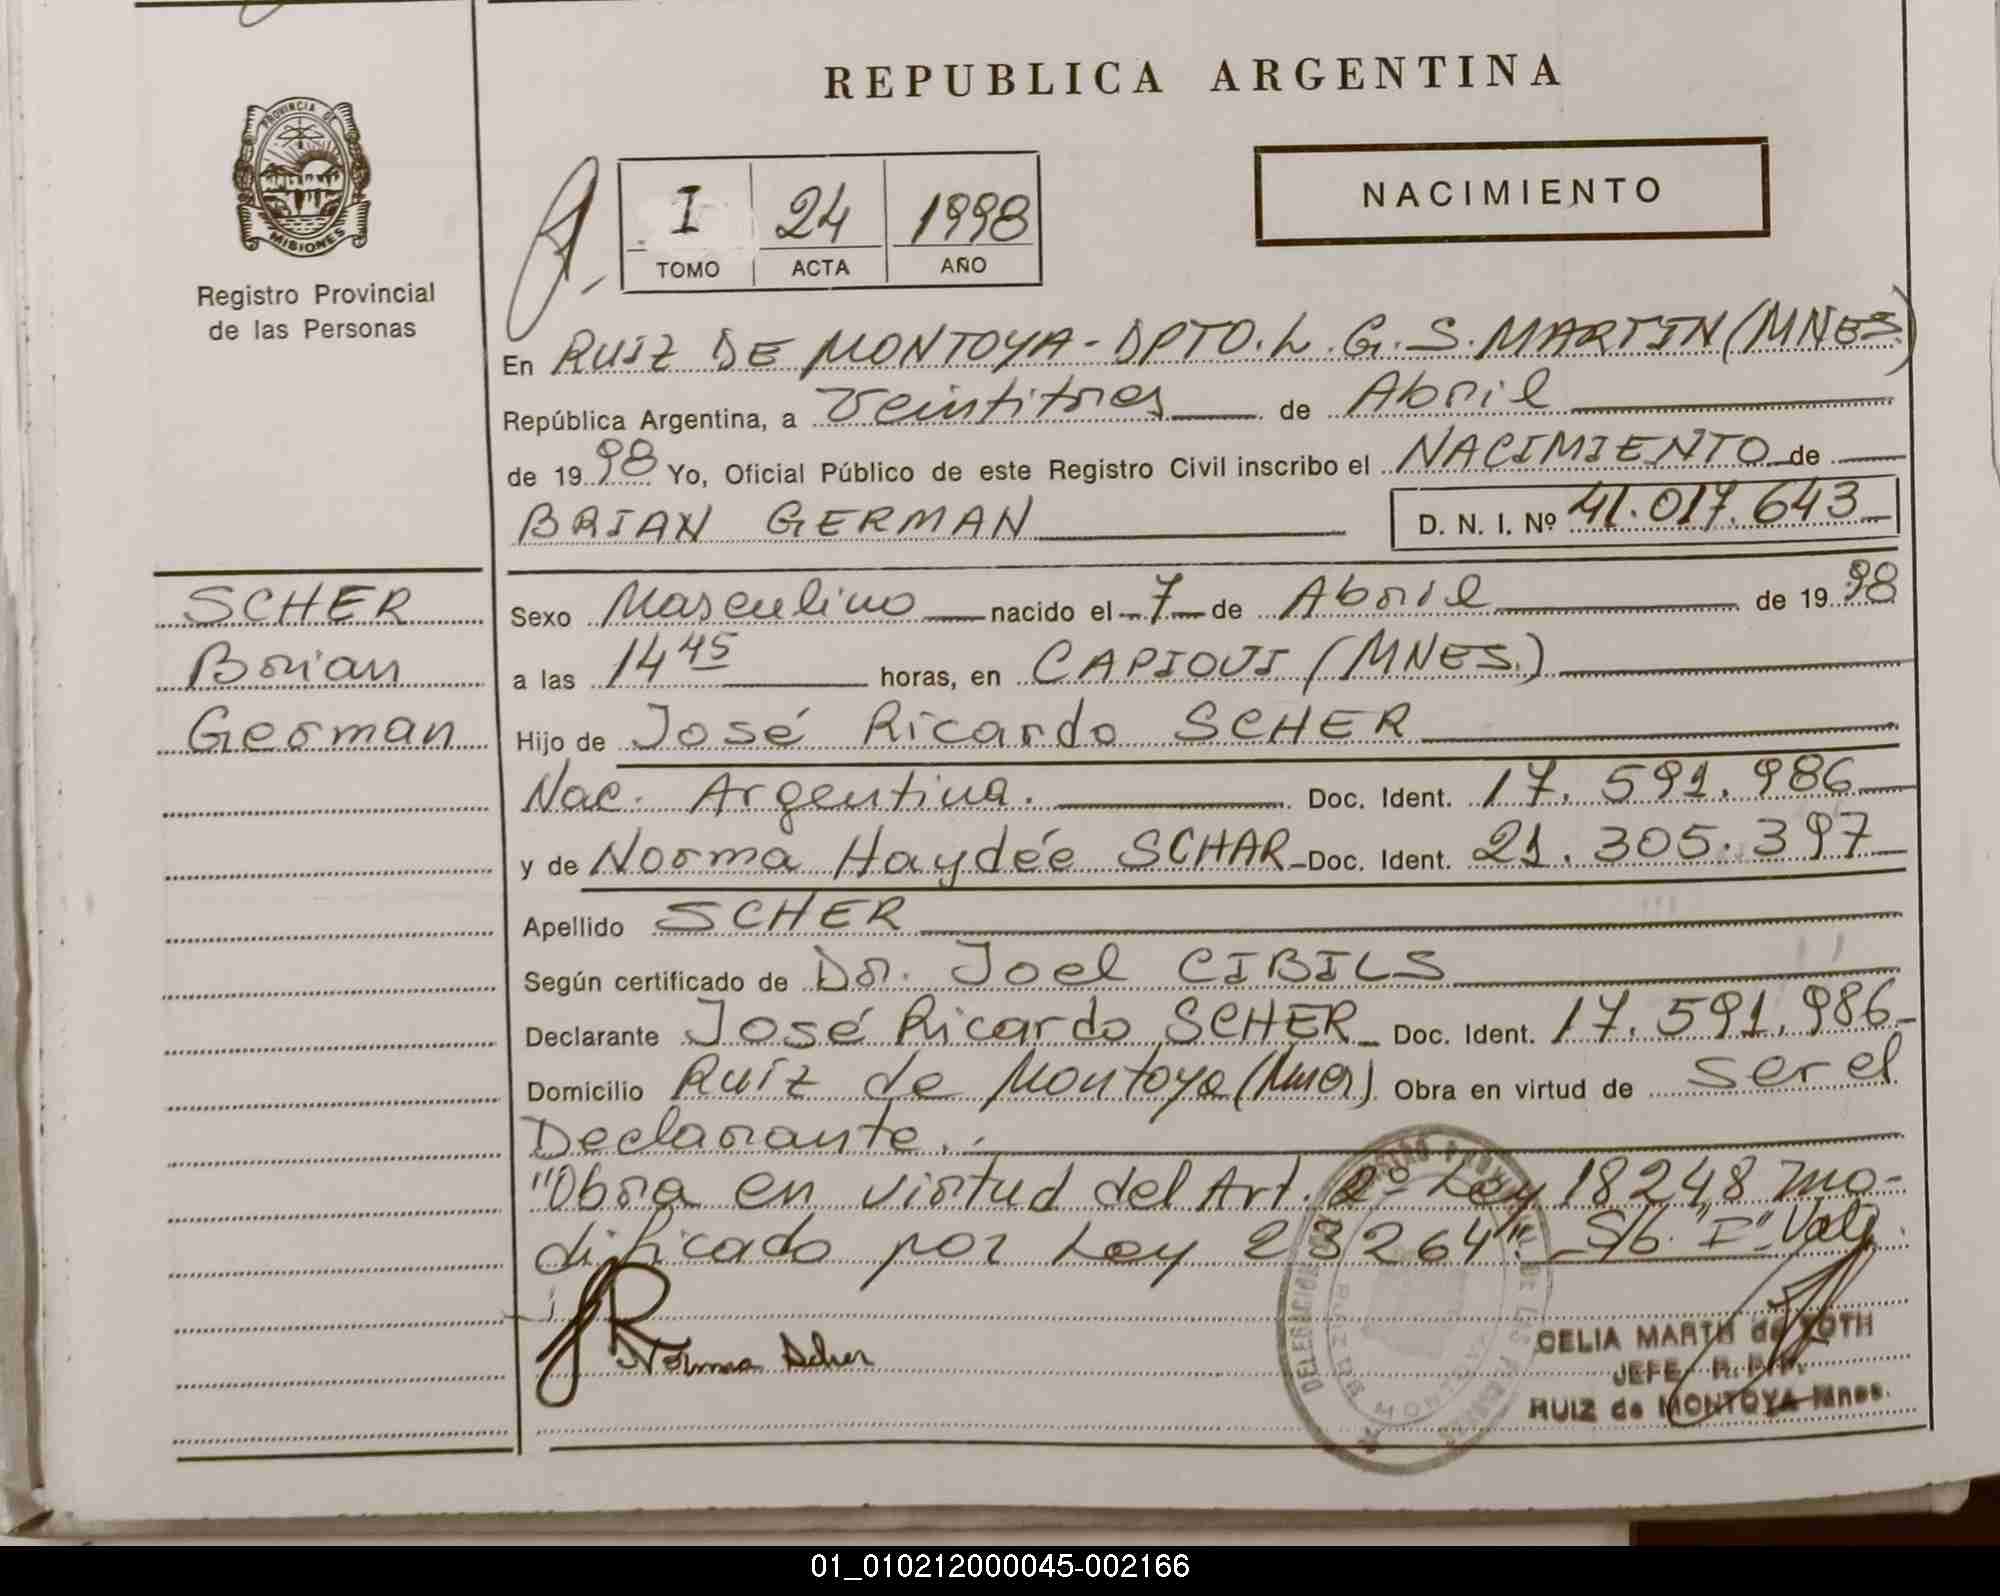 REPUBLICA ARGENTINA
PROVINCIA DE
MISIONES
Registro Provincial
de las Personas
I 24 1998
TOMO ACTA AÑO
NACIMIENTO
En RUIZ DE MONTOYA - DPTO. L. G. S. MARTIN (MNES)
República Argentina, a Veintitres de Abril
de 1998 Yo, Oficial Público de este Registro Civil inscribo el NACIMIENTO de
BRIAN GERMAN D. N. I. Nº 41.017.643
SCHER
Brian
German
Sexo Masculino nacido el 7 de Abril de 1998
a las 14 45 horas, en CAPIOVI (MNES.)
Hijo de José Ricardo SCHER
Nac. Argentina. Doc. Ident. 17.591.986
y de Norma Haydée SCHAR Doc. Ident. 21.305.397
Apellido SCHER
Según certificado de Dr. Joel CIBILS
Declarante José Ricardo SCHER Doc. Ident. 17.591.986
Domicilio Ruiz de Montoya (Mnes) Obra en virtud de ser el
Declarante.
"Obra en virtud del Art. 2º Ley 18248 mo-
dificado por Ley 23264". S/b. "I" Vale.
Norma Scher
CELIA MARTH de TOTH
JEFE R.P.P.
RUIZ de MONTOYA Mnes.
01_010212000045-002166